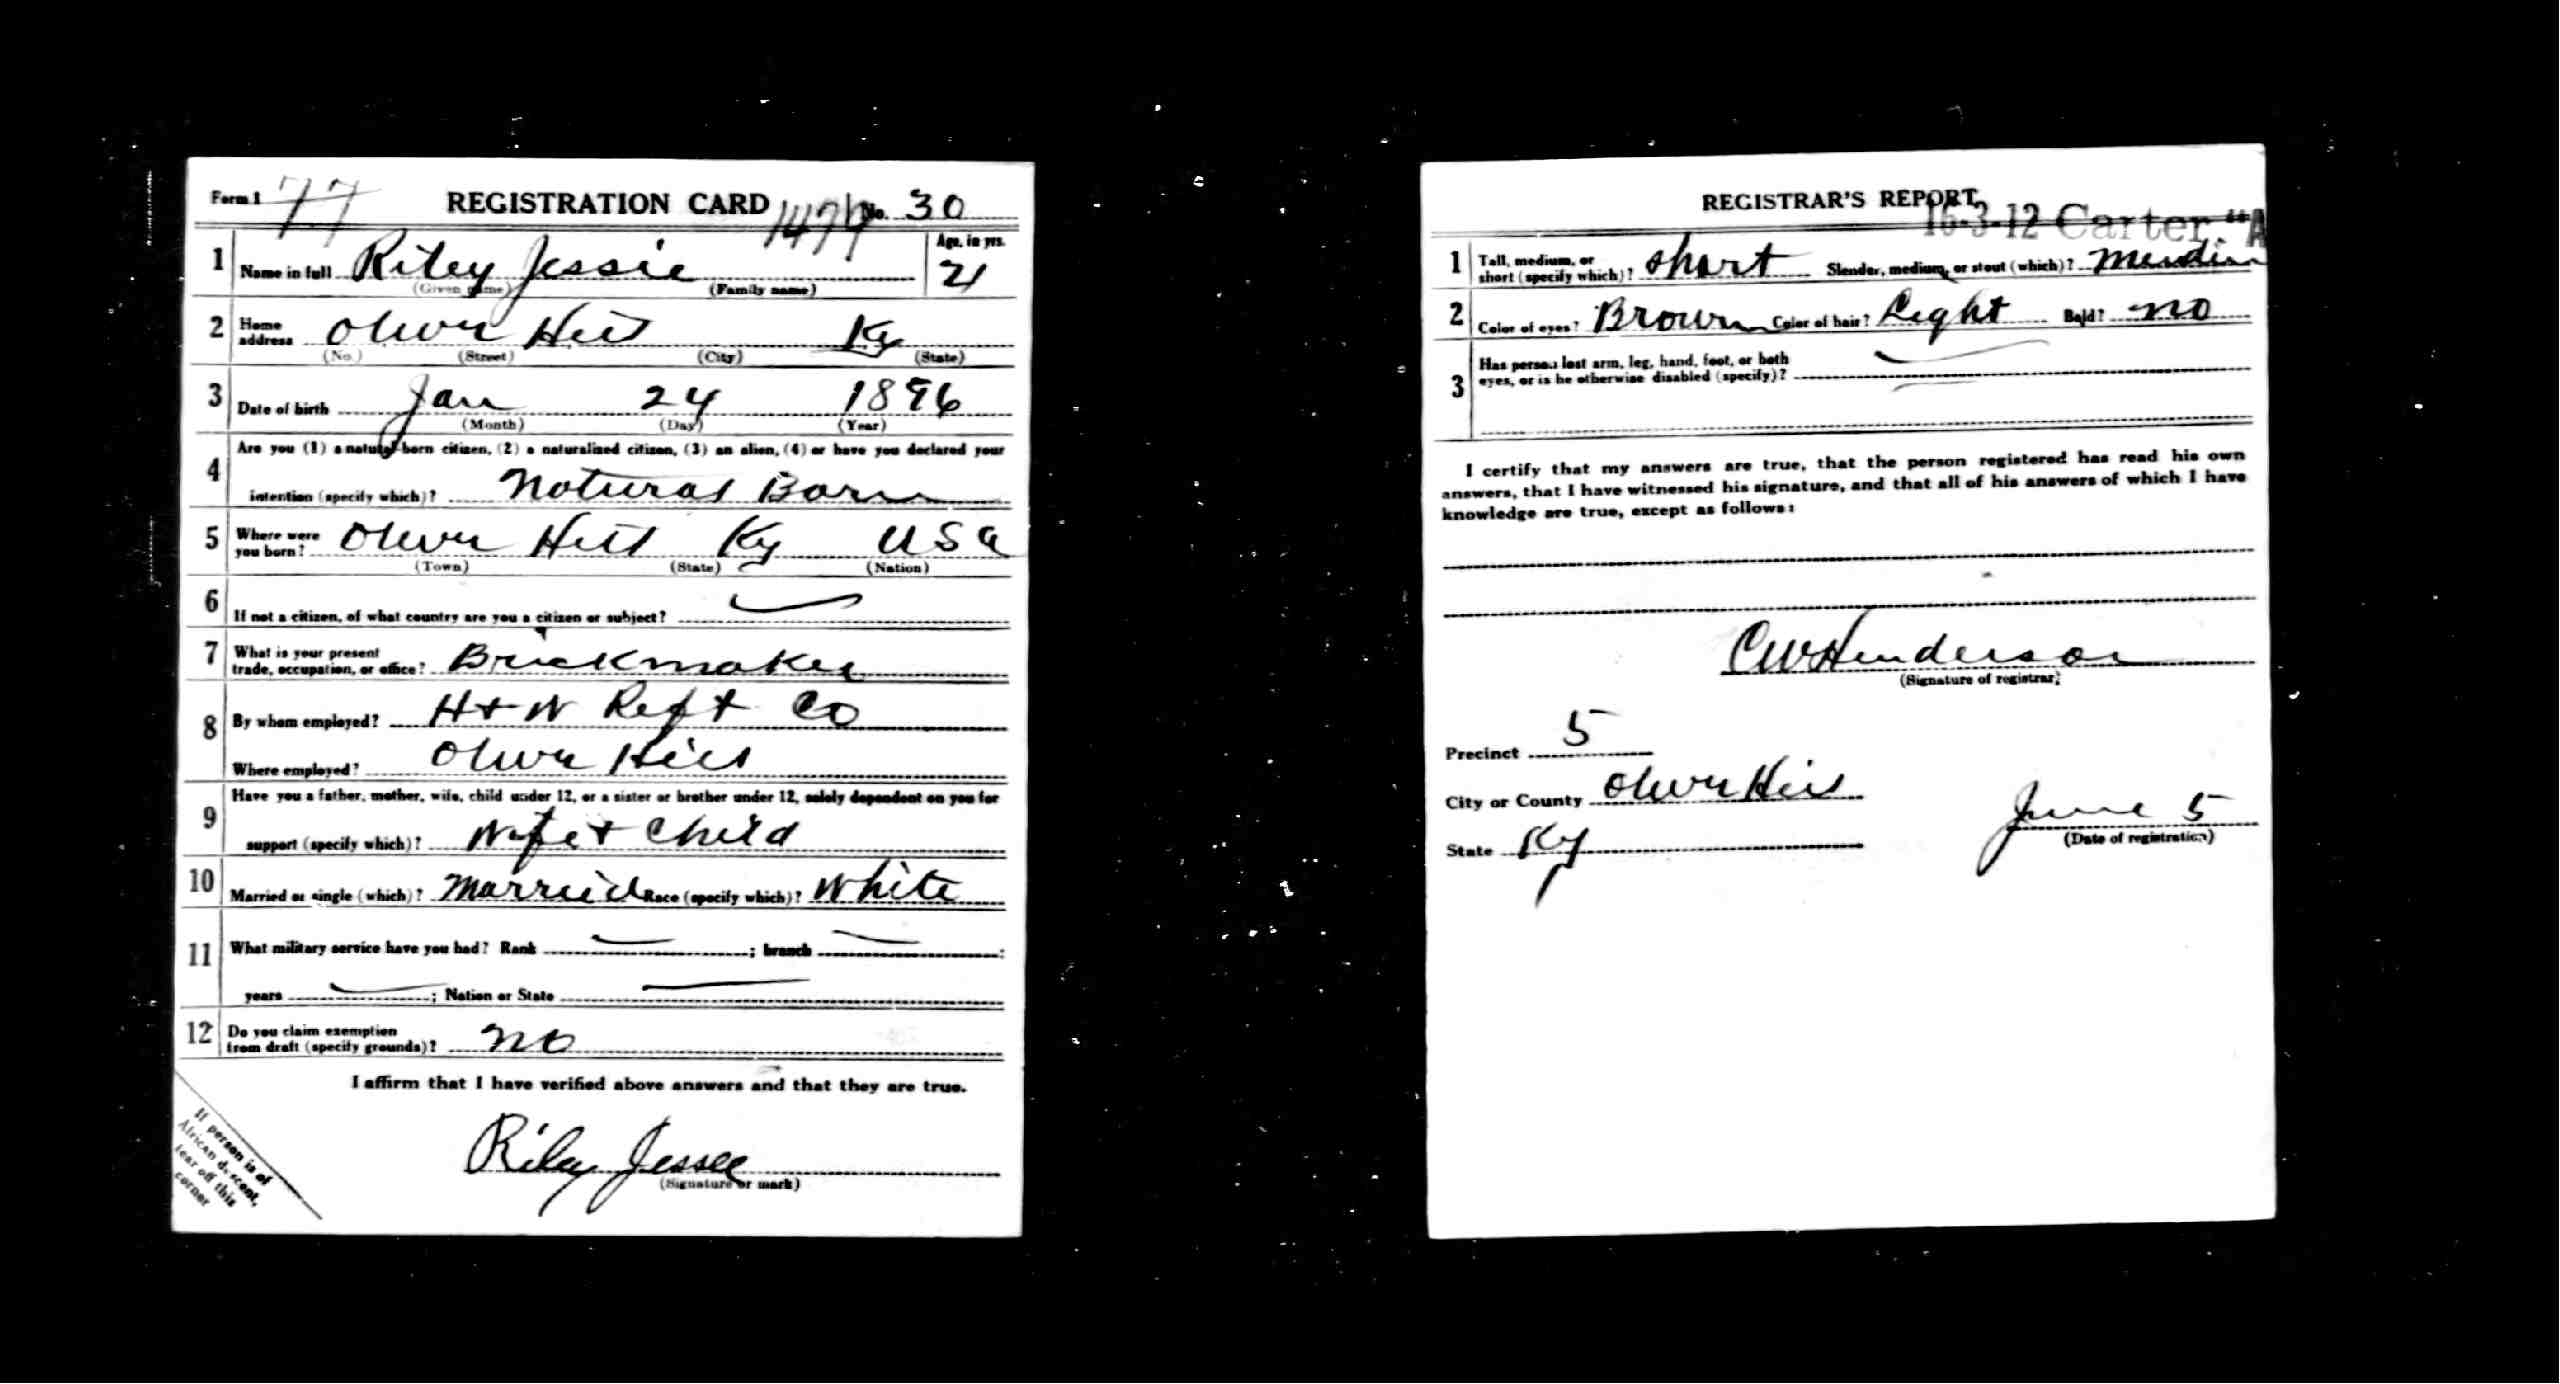 Form 1 77 REGISTRATION CARD 1479 No. 30
1 Name in full Riley Jessie Age, in yrs. 21
(Given name) (Family name)
2 Home address Oliver Hill Ky
(No.) (Street) (City) (State)
3 Date of birth Jan 24 1896
(Month) (Day) (Year)
4 Are you (1) a natural-born citizen, (2) a naturalized citizen, (3) an alien, (4) or have you declared your
intention (specify which)? Natural Born
5 Where were you born? Oliver Hill Ky USA
(Town) (State) (Nation)
6 If not a citizen, of what country are you a citizen or subject?
7 What is your present
trade, occupation, or office? Brickmaker
8 By whom employed? H + W Reft Co
Where employed? Olive Hill
9 Have you a father, mother, wife, child under 12, or a sister or brother under 12, solely dependent on you for
support (specify which)? Wife + Child
10 Married or single (which)? Married Race (specify which)? White
11 What military service have you had? Rank ; branch ;
years ; Nation or State
12 Do you claim exemption
from draft (specify grounds)? No
I affirm that I have verified above answers and that they are true.
Riley Jessee
(Signature or mark)
If person is of
African descent,
tear off this
corner
REGISTRAR'S REPORT
16-3-12 Carter "A
1 Tall, medium, or
short (specify which)? Short Slender, medium, or stout (which)? Medium
2 Color of eyes? Brown Color of hair? Light Bald? No
3 Has person lost arm, leg, hand, foot, or both
eyes, or is he otherwise disabled (specify)?
I certify that my answers are true, that the person registered has read his own
answers, that I have witnessed his signature, and that all of his answers of which I have
knowledge are true, except as follows:
CW Henderson
(Signature of registrar)
Precinct 5
City or County Olive Hill
June 5
(Date of registration)
State Ky